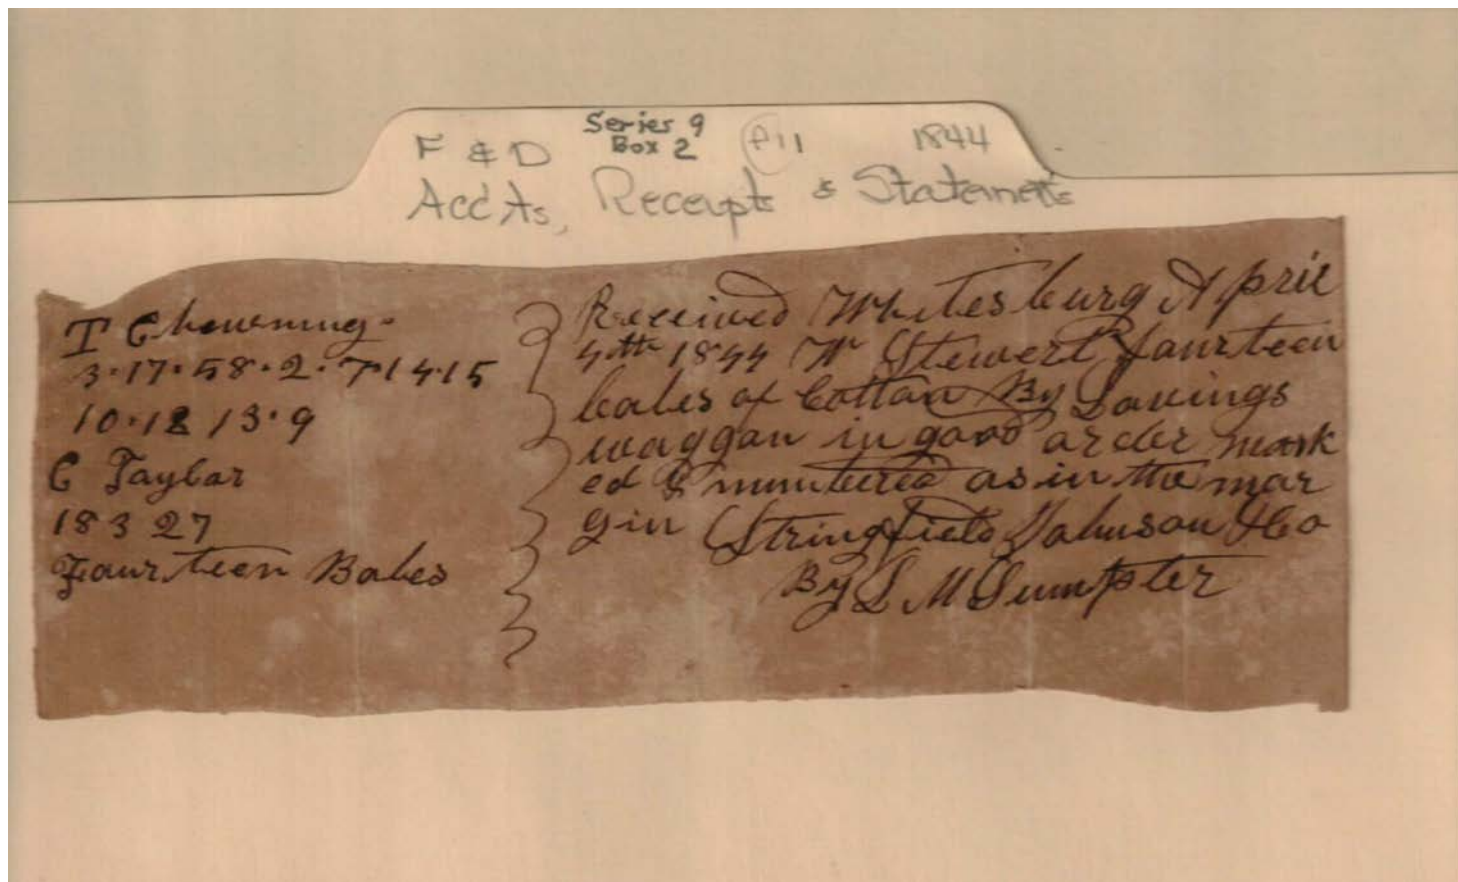 Series 9
F & D Box 2 F11 1844
Accts, Receipts & Statements
T Chowning
3.17.58.2.71415
10.12 13.9
C Taylor
18 3 27
Fourteen Bales
Received Whitesburg April
4th 1844 W Stewert fourteen
bales of Cotton By Lovings
waggon in good order mark
ed & numbered as in the mar
gin Stringfield Johnson & Co
By L M Sumpter